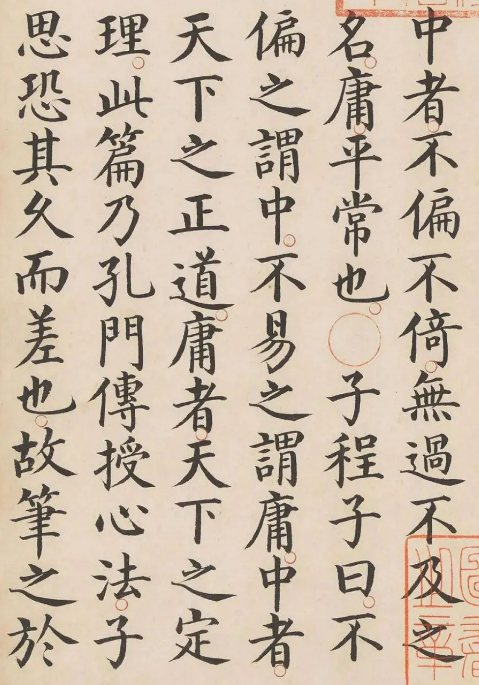 中者不偏不倚無過不及之
名庸平常也○子程子曰不
偏之謂中不易之謂庸中者
天下之正道庸者天下之定
理此篇乃孔門傳授心法子
思恐其久而差也故筆之於